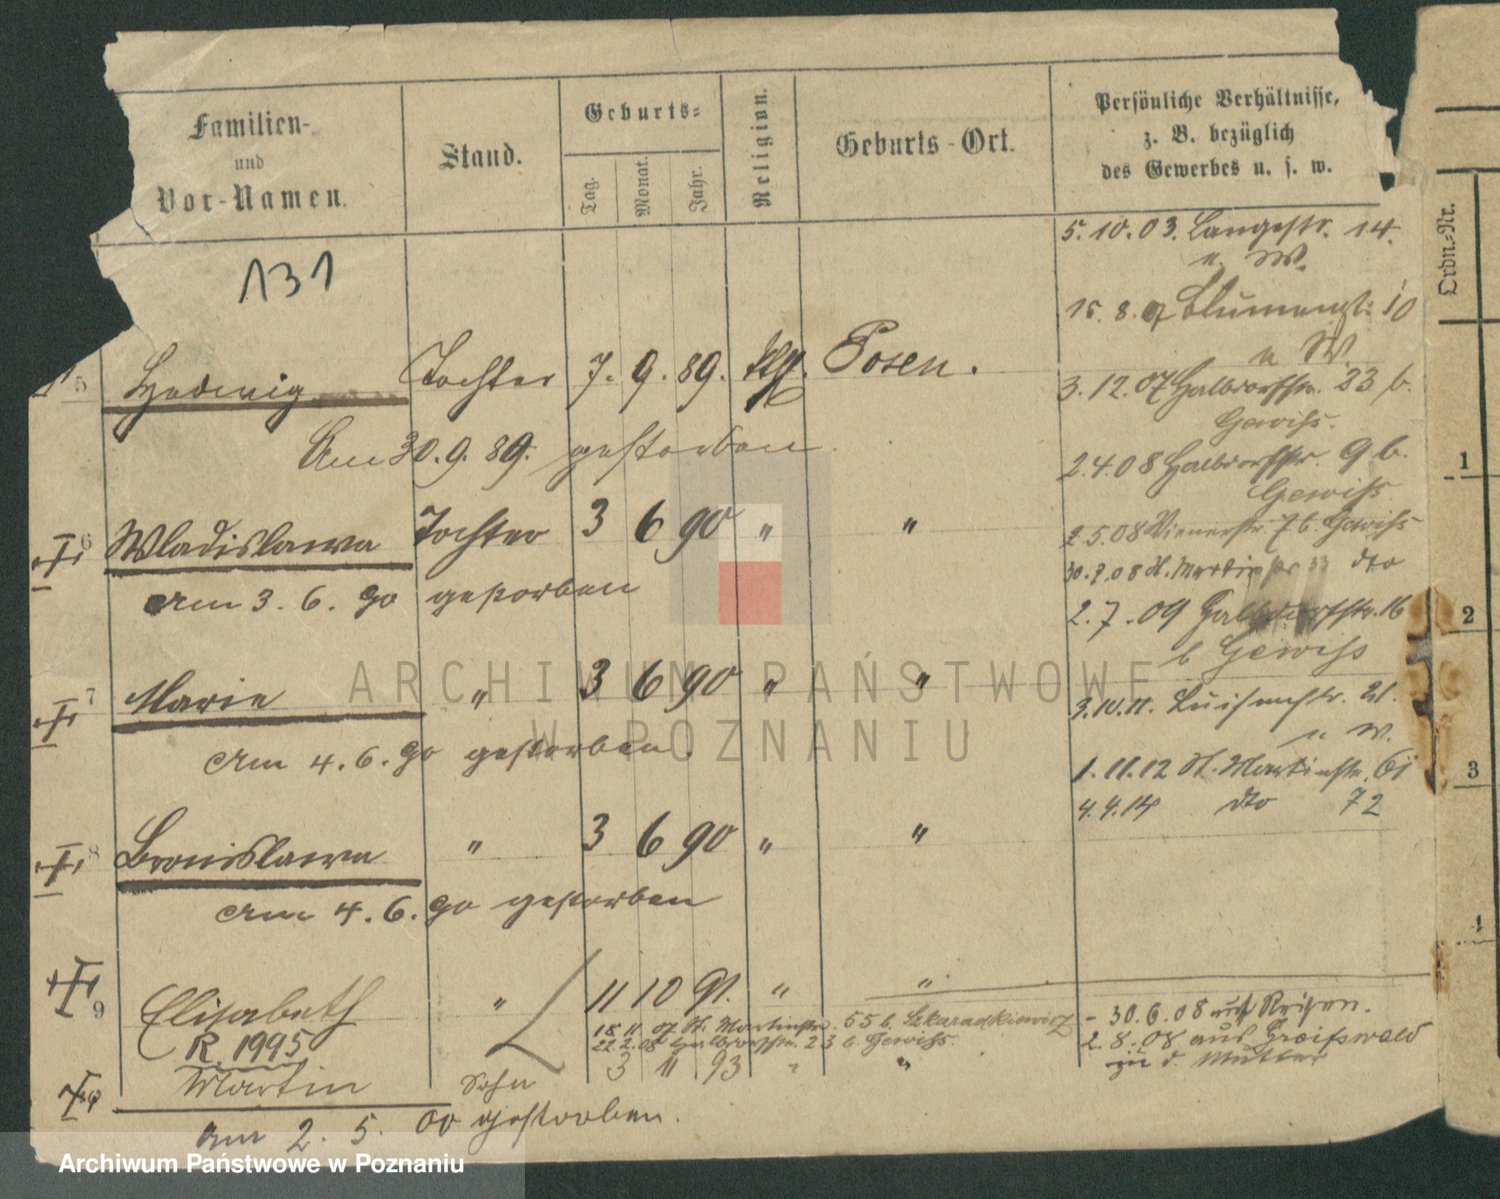 Familien-
und
Vor-Namen.
Stand.
Geburts-
Tag.
Monat.
Jahr.
Religion.
Geburts-Ort.
Persönliche Verhältnisse,
z. B. bezüglich
des Gewerbes u. s. w.
Ordn.-Nr.
131
5. 10. 03. Langestr. 14.
u. W.
15. 8. 07 Blumenstr. 10
u W
5 Hedwig Tochter 7. 9. 89. Posen.
3. 12. 07 Halbdorfstr. 23 b.
Gewiss.
Am 30. 9. 89. gestorben
2. 4. 08 Halbdorfstr. 9 b.
Gewiss
6 Wladislawa Tochter 3 6 90 " "
2 5. 08 Wienerstr. 7 b. Gewiss
30. 9. 08 St. Martinstr 33 dto
am 3. 6. 90 gestorben
2. 7. 09 Halbdorfstr. 16
b Gewiss
7 Marie " 3 6 90 " "
3. 10. 11. Luisenstr. 21.
u W.
am 4. 6. 90 gestorben.
1. 11. 12 St. Martinstr. 61
4. 4. 14 dto 72
8 Bronislawa " 3 6 90 " "
am 4. 6. 90 gestorben
9 Elisabeth " 11 10 91. " "
R. 1995
18. 11. 07 St. Martinstr. 55 b. Szkaradkiewicz
22. 2. 08 Halbdorfstr. 23 b. Gewiss.
- 30. 6. 08 auf Reisen.
2. 8. 08 aus Greifswald
zu d. Mutter
Martin Sohn 3 11 93 " "
am 2. 5. 00 gestorben.
1
2
3
4
ARCHIWUM PAŃSTWOWE
W POZNANIU
Archiwum Państwowe w Poznaniu